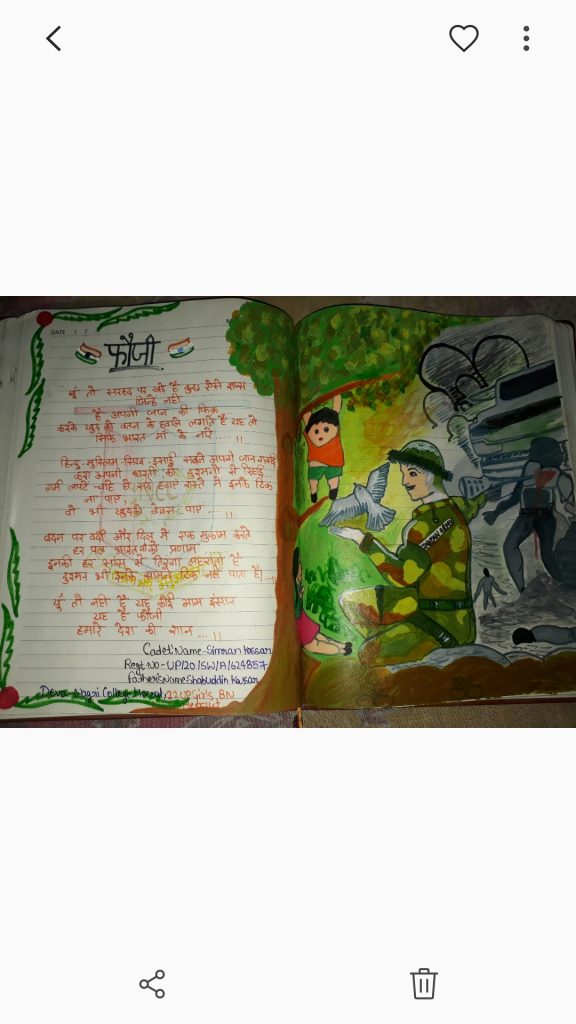 DATE / /
फौजी
यूँ तो सरहद पर खड़े है कुछ ऐसी शख्स
जिन्हें नही
है अपनी जान की फिक्र
करके खुद को वतन के हवाले लगाते है यह तो
सिर्फ भारत माँ के नारे ....।।
हिन्दु-मुस्लिम-सिख-इसाई सबने अपनी जान गवाई
करा अपनी धरती को दुश्मनी से रिहाई
गर्म लपटे सर्द हवाए रास्ते में इनके टिक
ना पाए,
वो भी खुदको बेबस पाए ....।।
बदन पर वर्दी और दिल में एक मुकाम करते
हर पल भारत माँ को प्रणाम
इनकी हर सांस से तिरंगा लहराता है
दुश्मन भी इनके सामने टिक नही पाता है।...।।
यूँ तो नही है यह कोई आम इंसान
यह है फौजी
हमारे देश की शान ...।।
Cadet'Name-Simran Kassar
Regt.No-UP/20/SW/A/624857
Father'sName Shabuddin Kassar
Deva Nagri College Meerut, 22 UP Girls BN
Meerut
INDIAN ARMY